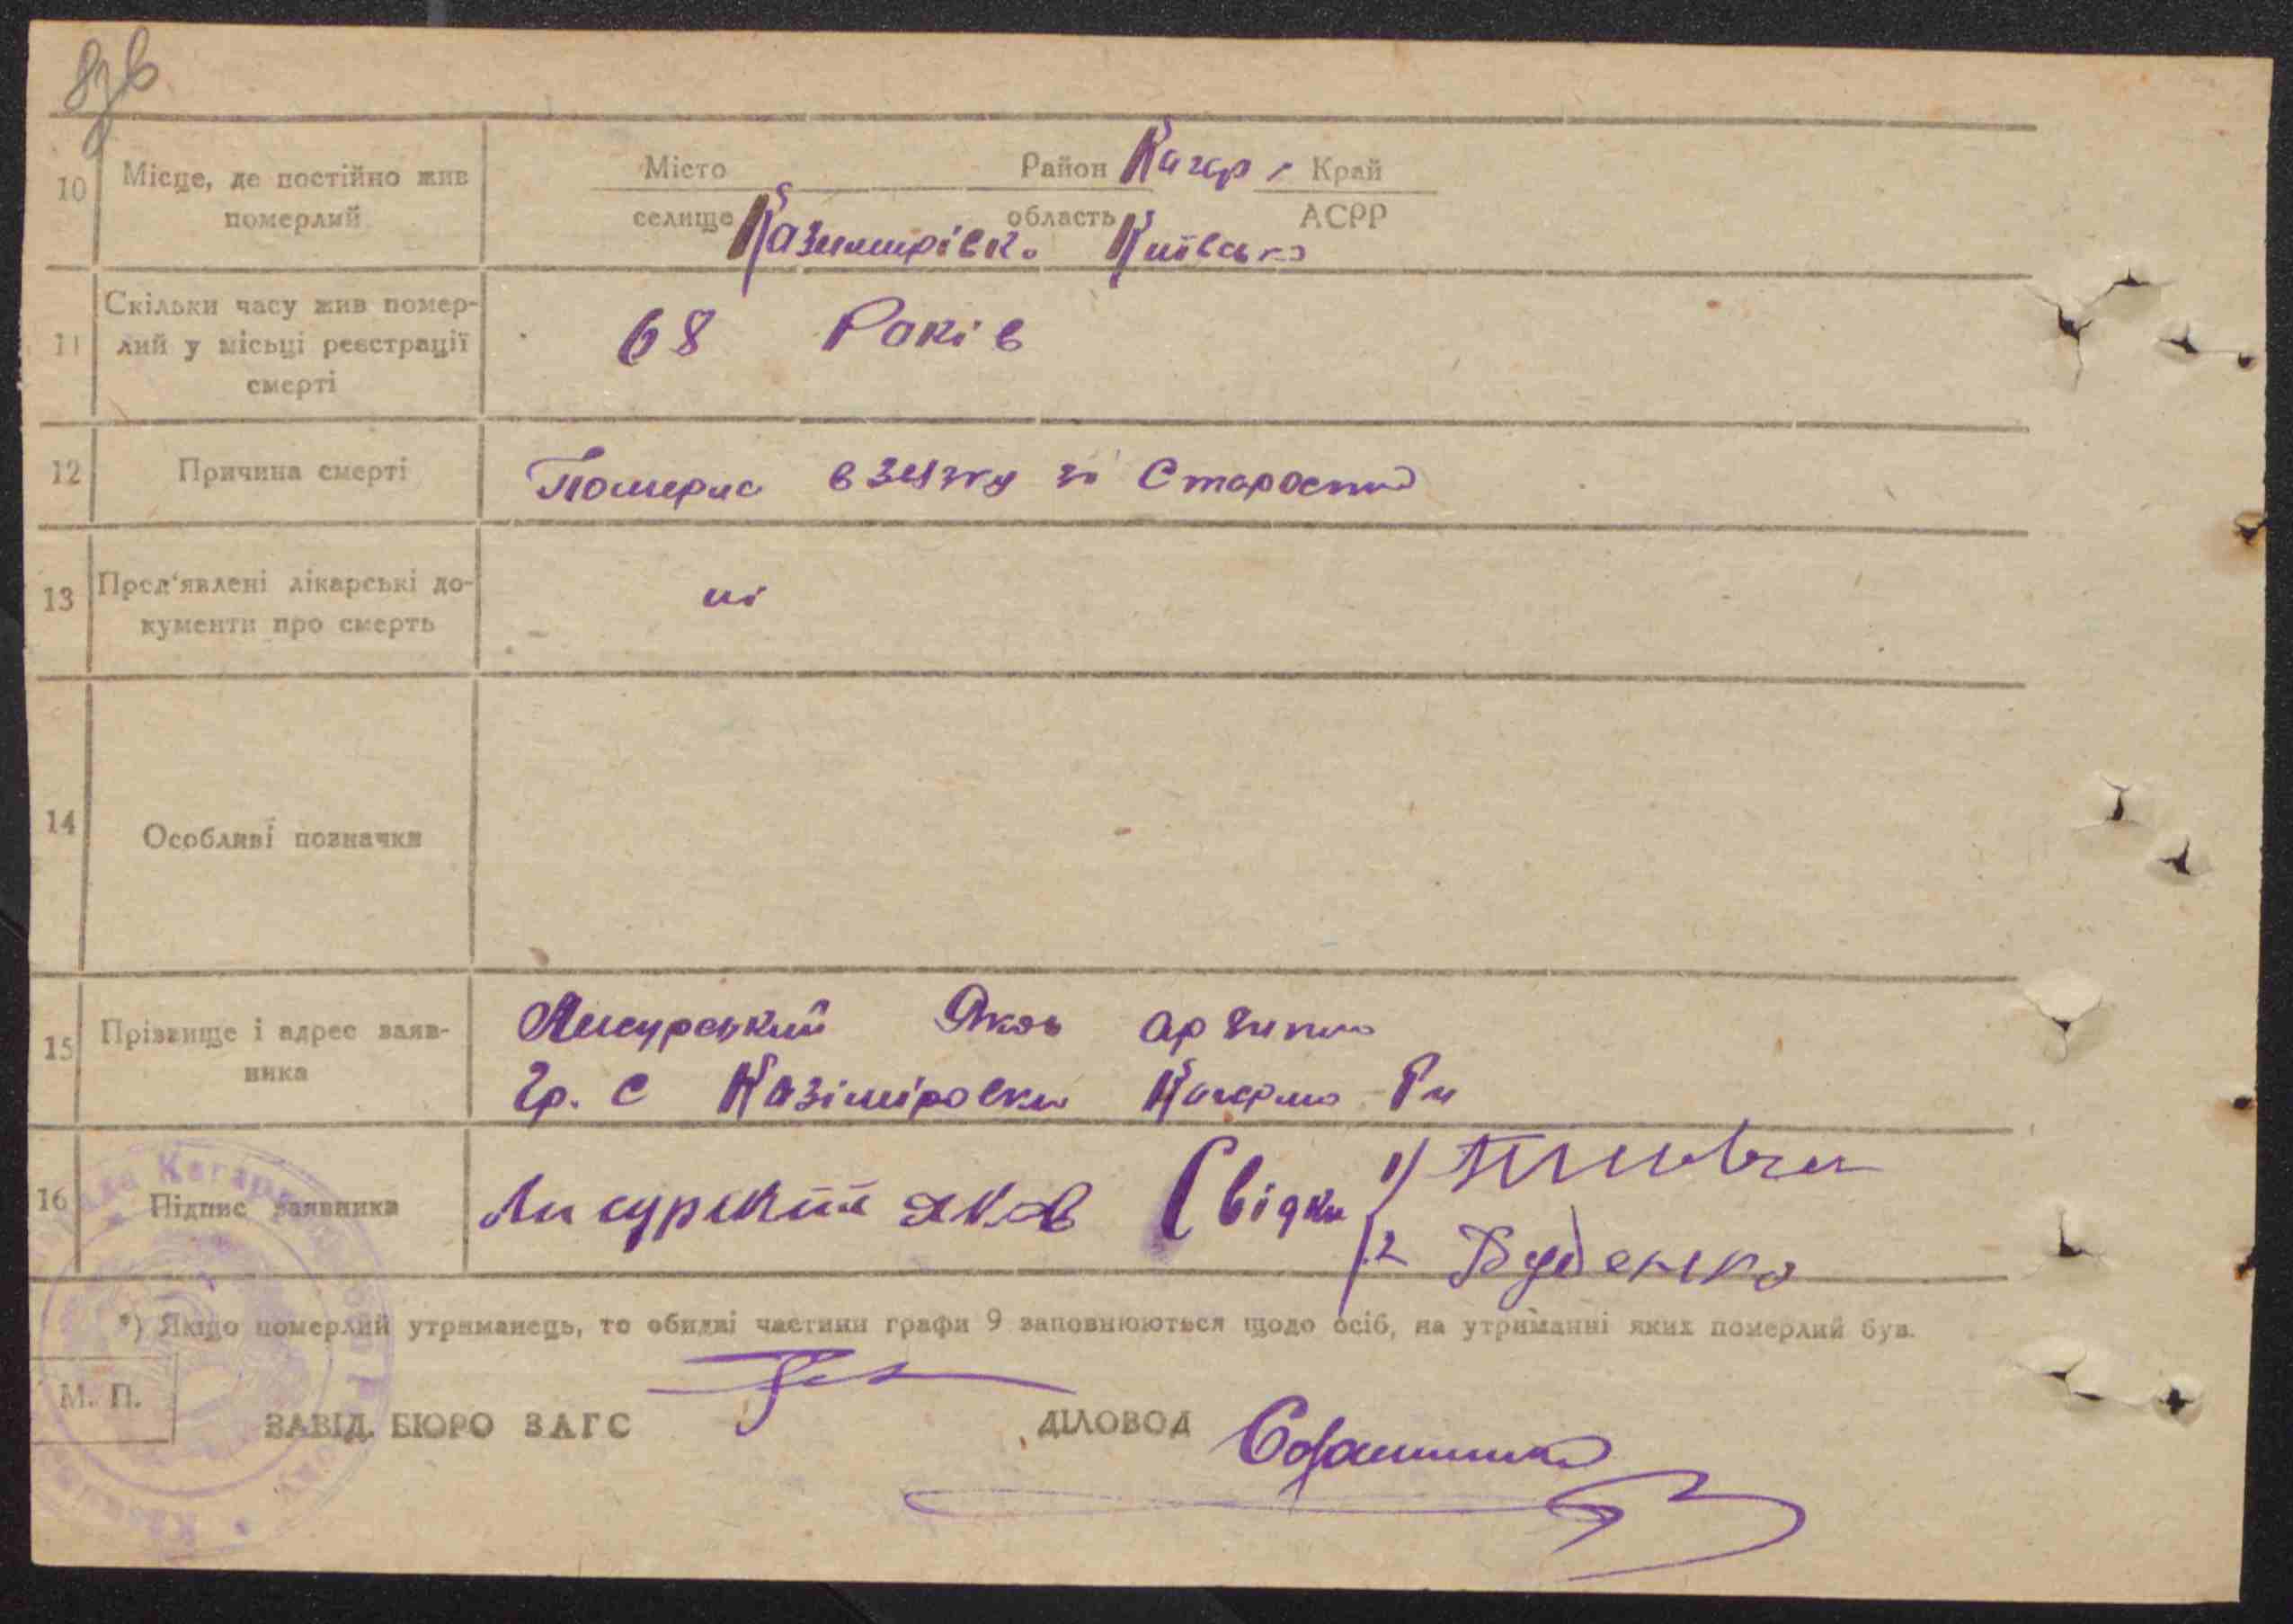 10 Місце, де постійно жив померлий
Місто Район Кагар. Край
селище Казимирівк. область Київсько АСРР
11 Скільки часу жив помер-
лий у місьці реєстрації
смерті
68 Років
12 Причина смерті
Померла взвязку зі Старостю
13 Пред'явлені лікарські до-
кументи про смерть
ні
14 Особливі позначки
15 Прізвище і адрес заяв-
ника
Лисурський Яков
Гр. С Казіміровки Кагарл Рн
16 Підпис заявника
Лисурський яков Свідки 1/
2 Буденко
*) Якщо померлий утриманець, то обидві частини графи 9 заповнюються щодо осіб, на утриманні яких померлий був.
М. П.
ЗАВІД. БЮРО ЗАГС
ДІЛОВОД